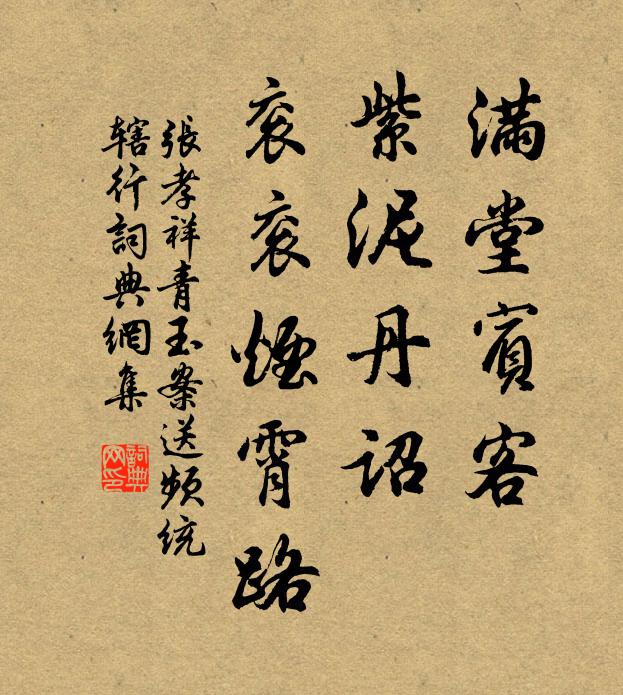 滿堂賓客
紫泥丹詔
袞袞煙霄路
張孝祥青玉案送頻統
轄行詞典網集
詞典
网印